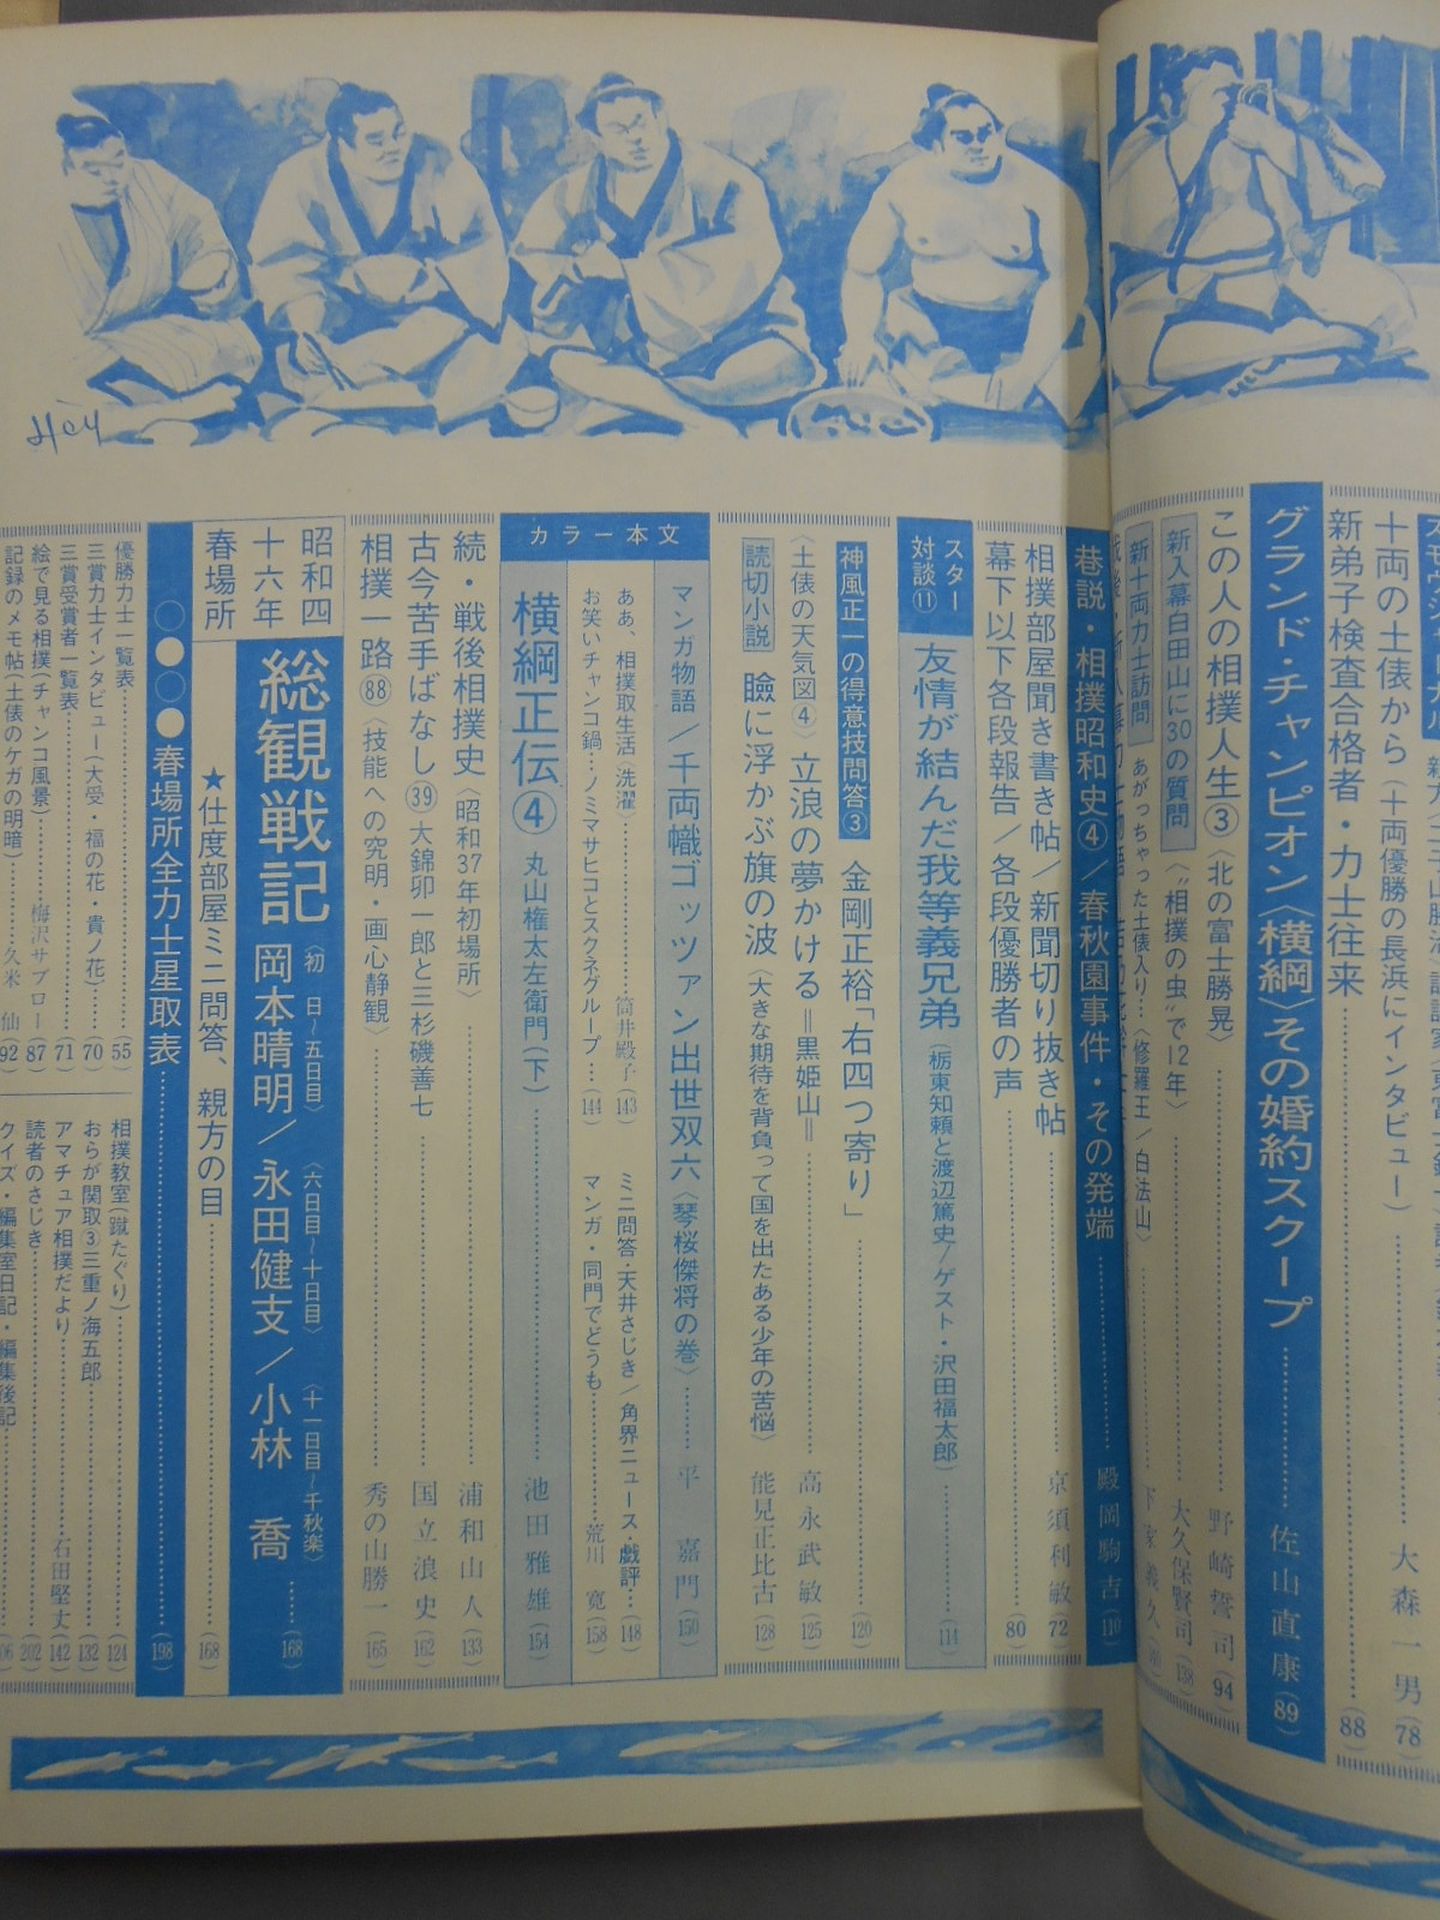 十両の土俵から〈十両優勝の長浜にインタビュー〉 大森一男(78)
新弟子検査合格者・力士往来 (88)
グランド・チャンピオン〈横綱〉その婚約スクープ 佐山直康(89)
この人の相撲人生③〈北の富士勝晃〉 野崎誓司(94)
新入幕白田山に30の質問〈"相撲の虫"で12年〉 大久保賢司(138)
新十両力士訪問 あがっちゃった土俵入り…〈修羅王/白法山〉
巷説・相撲昭和史④/春秋園事件・その発端 殿岡駒吉(110)
相撲部屋聞き書き帖/新聞切り抜き帖 京須利敏(72)
幕下以下各段報告/各段優勝者の声 (80)
スター対談⑪ 友情が結んだ我等義兄弟(栃東知頼と渡辺篤史/ゲスト・沢田福太郎) (114)
神風正一の得意技問答③ 金剛正裕「右四つ寄り」 (120)
〈土俵の天気図④〉立浪の夢かける=黒姫山= 高永武敏(125)
読切小説 瞼に浮かぶ旗の波〈大きな期待を背負って国を出たある少年の苦悩〉 能見正比古(128)
カラー本文
マンガ物語/千両幟ゴッツァン出世双六〈琴桜傑将の巻〉 平嘉門(150)
ああ、相撲取生活〈洗濯〉 筒井殿子(143)
ミニ問答・天井さじき/角界ニュース・戯評 (148)
お笑いチャンコ鍋…ノミマサヒコとスクネグループ…(144)
マンガ・同門でどうも 荒川寛(158)
横綱正伝④ 丸山権太左衛門(下) 池田雅雄(154)
続・戦後相撲史〈昭和37年初場所〉 浦和山人(133)
古今苦手ばなし㊴大錦卯一郎と三杉磯善七 国立浪史(162)
相撲一路(88)〈技能への究明・画心静観〉 秀の山勝一(165)
昭和四十六年春場所
総観戦記〈初日~五日目〉岡本晴明/〈六日目~十日目〉永田健支/〈十一日目~千秋楽〉小林喬 (168)
★仕度部屋ミニ問答、親方の目 (168)
○●○●春場所全力士星取表 (198)
優勝力士一覧表 (55)
三賞力士インタビュー(大受・福の花・貴ノ花) (70)
三賞受賞者一覧表 (71)
絵で見る相撲(チャンコ風景) 梅沢サブロー(87)
記録のメモ帖(土俵のケガの明暗) 久米仙(92)
相撲教室(蹴たぐり) (124)
おらが関取③三重ノ海五郎 (132)
アマチュア相撲だより 石田堅丈(142)
読者のさじき (202)
クイズ・編集室日記・編集後記